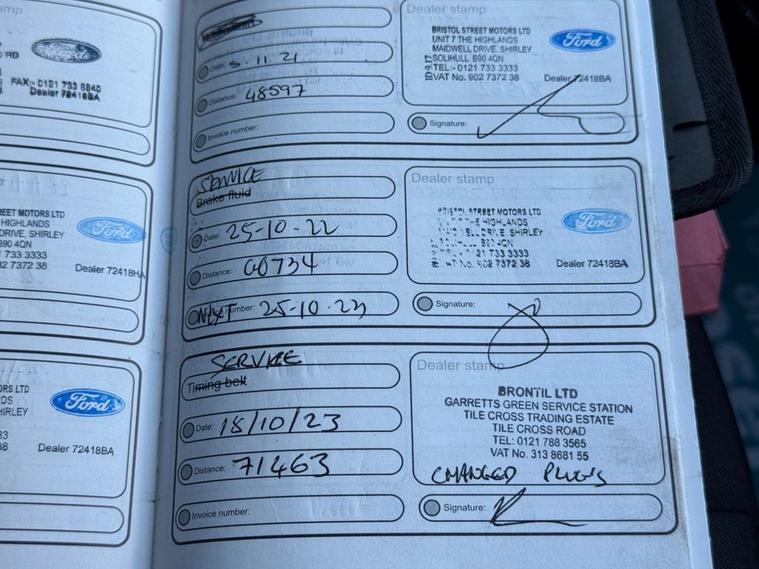 RD
Ford
FAX:- 0121 733 8840
Dealer 72418BA
REET MOTORS LTD
HIGHLANDS
DRIVE, SHIRLEY
B90 4QN
733 3333
02 7372 38
Ford
Dealer 72418
ORS LTD
DS
HIRLEY
33
38
Ford
Dealer 72418BA
Date: 5.11.21
Distance: 48597
Invoice number:
Dealer stamp
BRISTOL STREET MOTORS LTD
UNIT 7 THE HIGHLANDS
MAIDWELL DRIVE, SHIRLEY
SOLIHULL B90 4QN
TEL:- 0121 733 3333
VAT No. 902 7372 38
Ford
Dealer 72418BA
Signature:
SERVICE
Brake fluid
Date: 25-10-22
Distance: 60734
NEXT number: 25-10-23
Dealer stamp
BRISTOL STREET MOTORS LTD
THE HIGHLANDS
DRIVE, SHIRLEY
B90 4QN
0121 733 3333
No. 902 7372 38
Ford
Dealer 72418BA
Signature:
SERVICE
Timing belt
Date: 18/10/23
Distance: 71463
Invoice number:
Dealer stamp
BRONTIL LTD
GARRETTS GREEN SERVICE STATION
TILE CROSS TRADING ESTATE
TILE CROSS ROAD
TEL: 0121 788 3565
VAT No. 313 8681 55
CHANGED PLUGS
Signature: